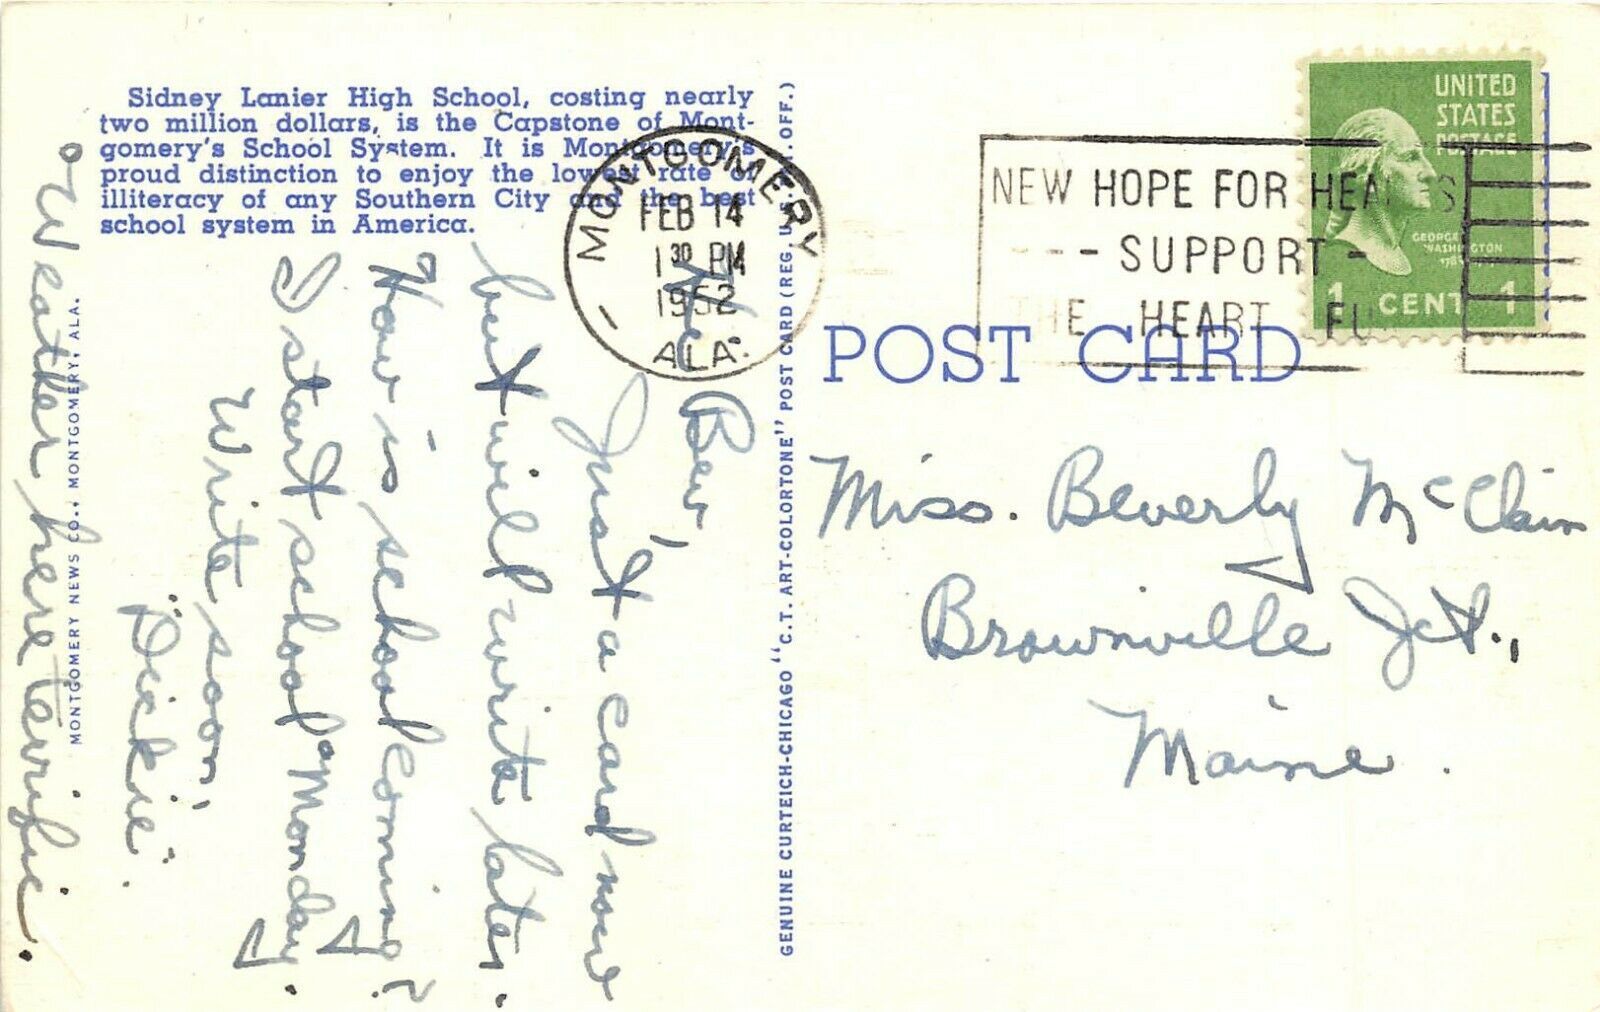 Sidney Lanier High School, costing nearly
two million dollars, is the Capstone of Mont-
gomery's School System. It is Montgomery's
proud distinction to enjoy the lowest rate of
illiteracy of any Southern City and the best
school system in America.
MONTGOMERY
FEB 14
1 30 PM
1952
ALA.
NEW HOPE FOR HEARTS
--- SUPPORT -
THE HEART FUND
UNITED
STATES
POSTAGE
GEORGE
WASHINGTON
1 CENT 1
POST CARD
Miss. Beverly McClain
Brownville Jct.,
Maine.
GENUINE CURTEICH-CHICAGO "C.T. ART-COLORTONE" POST CARD (REG. U.S. PAT. OFF.)
Bev,
Just a card now
but will write later.
How is school coming?
I start school Monday.
Write soon,
"Dickie".
Weather here terrific.
MONTGOMERY NEWS CO., MONTGOMERY, ALA.